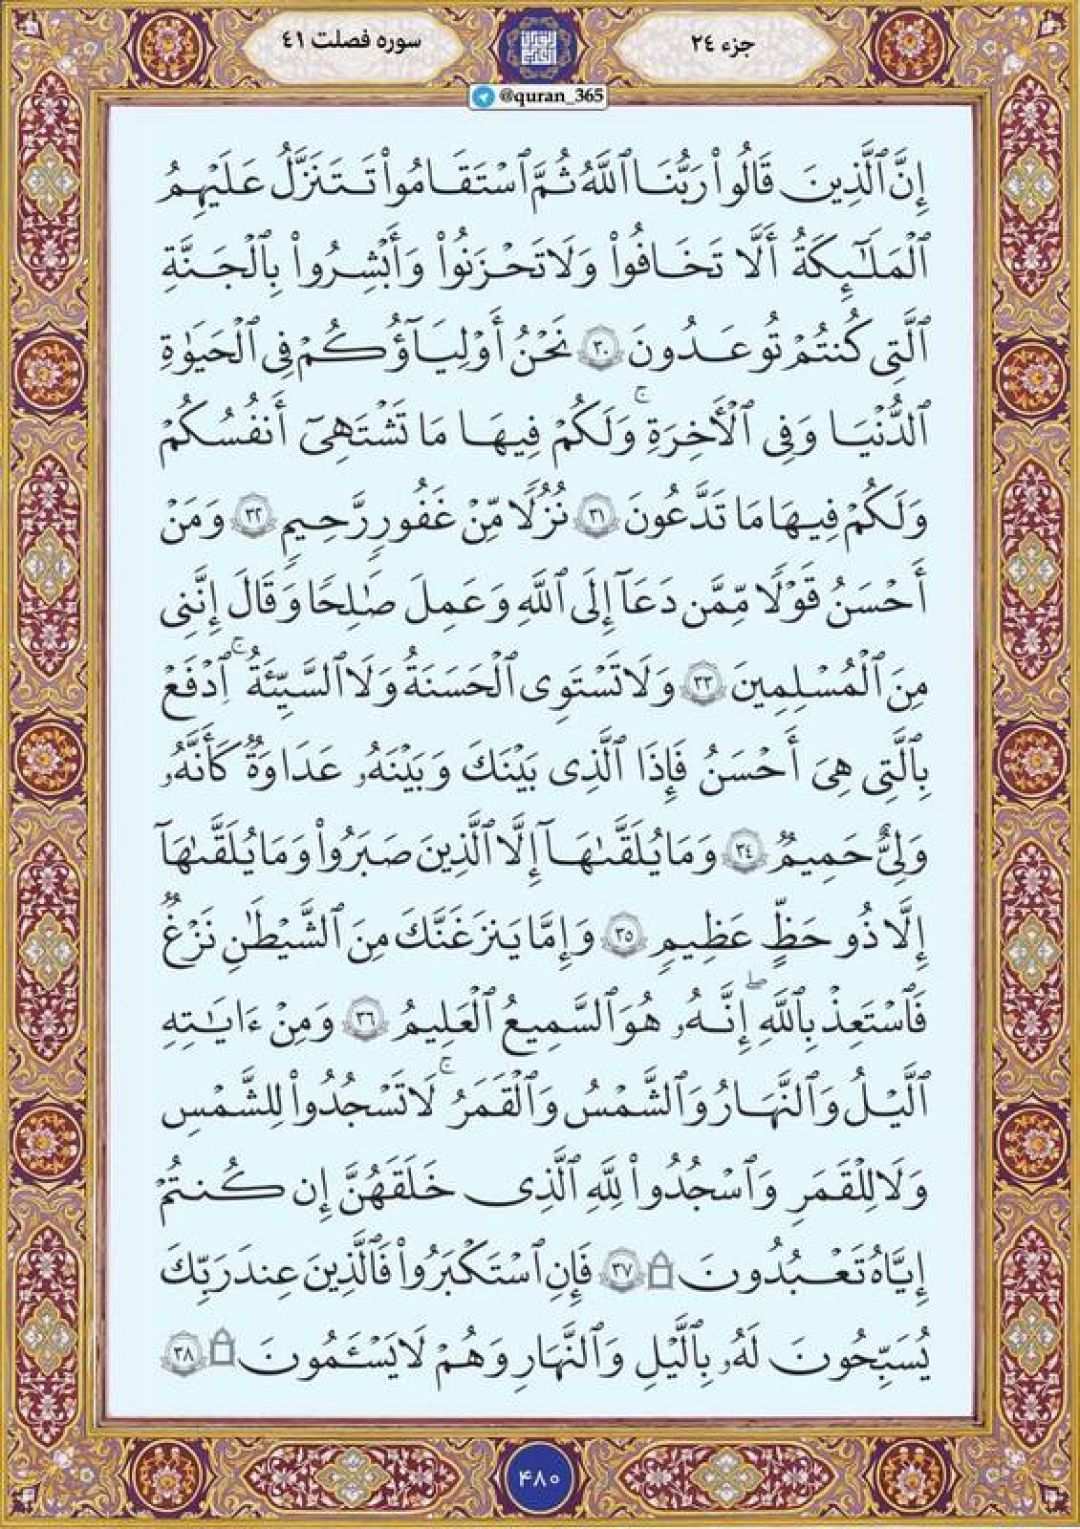 جزء ٢٤
سوره فصلت ٤١
@quran_365
إِنَّ ٱلَّذِينَ قَالُوا۟ رَبُّنَا ٱللَّهُ ثُمَّ ٱسْتَقَٰمُوا۟ تَتَنَزَّلُ عَلَيْهِمُ
ٱلْمَلَٰٓئِكَةُ أَلَّا تَخَافُوا۟ وَلَا تَحْزَنُوا۟ وَأَبْشِرُوا۟ بِٱلْجَنَّةِ
ٱلَّتِى كُنتُمْ تُوعَدُونَ ٣٠ نَحْنُ أَوْلِيَآؤُكُمْ فِى ٱلْحَيَوٰةِ
ٱلدُّنْيَا وَفِى ٱلْأَخِرَةِ ۚ وَلَكُمْ فِيهَا مَا تَشْتَهِىٓ أَنفُسُكُمْ
وَلَكُمْ فِيهَا مَا تَدَّعُونَ ٣١ نُزُلًا مِّنْ غَفُورٍ رَّحِيمٍ ٣٢ وَمَنْ
أَحْسَنُ قَوْلًا مِّمَّن دَعَآ إِلَى ٱللَّهِ وَعَمِلَ صَٰلِحًا وَقَالَ إِنَّنِى
مِنَ ٱلْمُسْلِمِينَ ٣٣ وَلَا تَسْتَوِى ٱلْحَسَنَةُ وَلَا ٱلسَّيِّئَةُ ۚ ٱدْفَعْ
بِٱلَّتِى هِىَ أَحْسَنُ فَإِذَا ٱلَّذِى بَيْنَكَ وَبَيْنَهُۥ عَدَاوَةٌ كَأَنَّهُۥ
وَلِىٌّ حَمِيمٌ ٣٤ وَمَا يُلَقَّىٰهَآ إِلَّا ٱلَّذِينَ صَبَرُوا۟ وَمَا يُلَقَّىٰهَآ
إِلَّا ذُو حَظٍّ عَظِيمٍ ٣٥ وَإِمَّا يَنزَغَنَّكَ مِنَ ٱلشَّيْطَٰنِ نَزْغٌ
فَٱسْتَعِذْ بِٱللَّهِ ۖ إِنَّهُۥ هُوَ ٱلسَّمِيعُ ٱلْعَلِيمُ ٣٦ وَمِنْ ءَايَٰتِهِ
ٱلَّيْلُ وَٱلنَّهَارُ وَٱلشَّمْسُ وَٱلْقَمَرُ ۚ لَا تَسْجُدُوا۟ لِلشَّمْسِ
وَلَا لِلْقَمَرِ وَٱسْجُدُوا۟ لِلَّهِ ٱلَّذِى خَلَقَهُنَّ إِن كُنتُمْ
إِيَّاهُ تَعْبُدُونَ ۩ ٣٧ فَإِنِ ٱسْتَكْبَرُوا۟ فَٱلَّذِينَ عِندَ رَبِّكَ
يُسَبِّحُونَ لَهُۥ بِٱلَّيْلِ وَٱلنَّهَارِ وَهُمْ لَا يَسْـَٔمُونَ ۩ ٣٨
۴۸۰